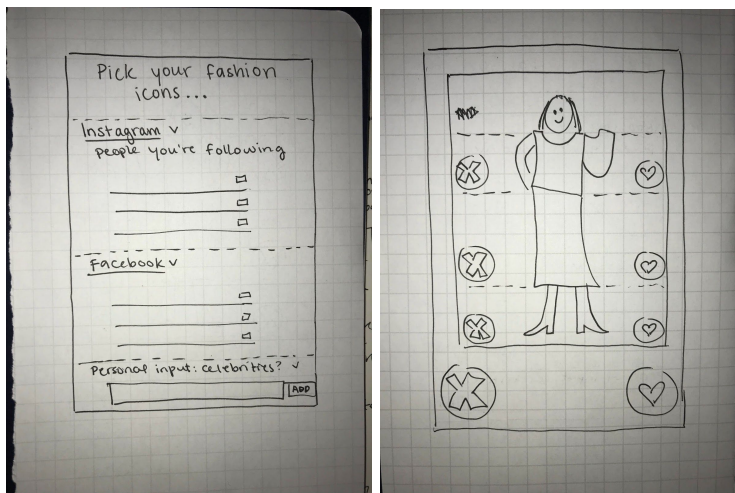 Pick your fashion
icons...
Instagram v
people you're following
Facebook v
Personal input: celebrities? v
ADD